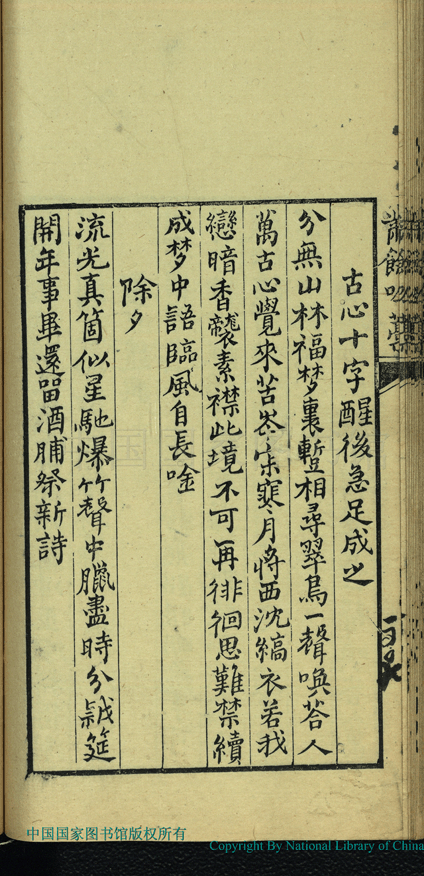 古心十字醒後急足成之
分無山林福梦裏暫相尋翠鳥一聲喚荅人
萬古心覺來苦岑寂寒月將西沈縞衣若我
戀暗香襲素襟此境不可再徘徊思難禁續
成梦中語臨風自長唫
除夕
流光真箇似星馳爆竹聲中臘盡時分歲筵
開年事畢還畱酒脯祭新詩
餘吟藁
中国国家图书馆版权所有
Copyright By National Library of China